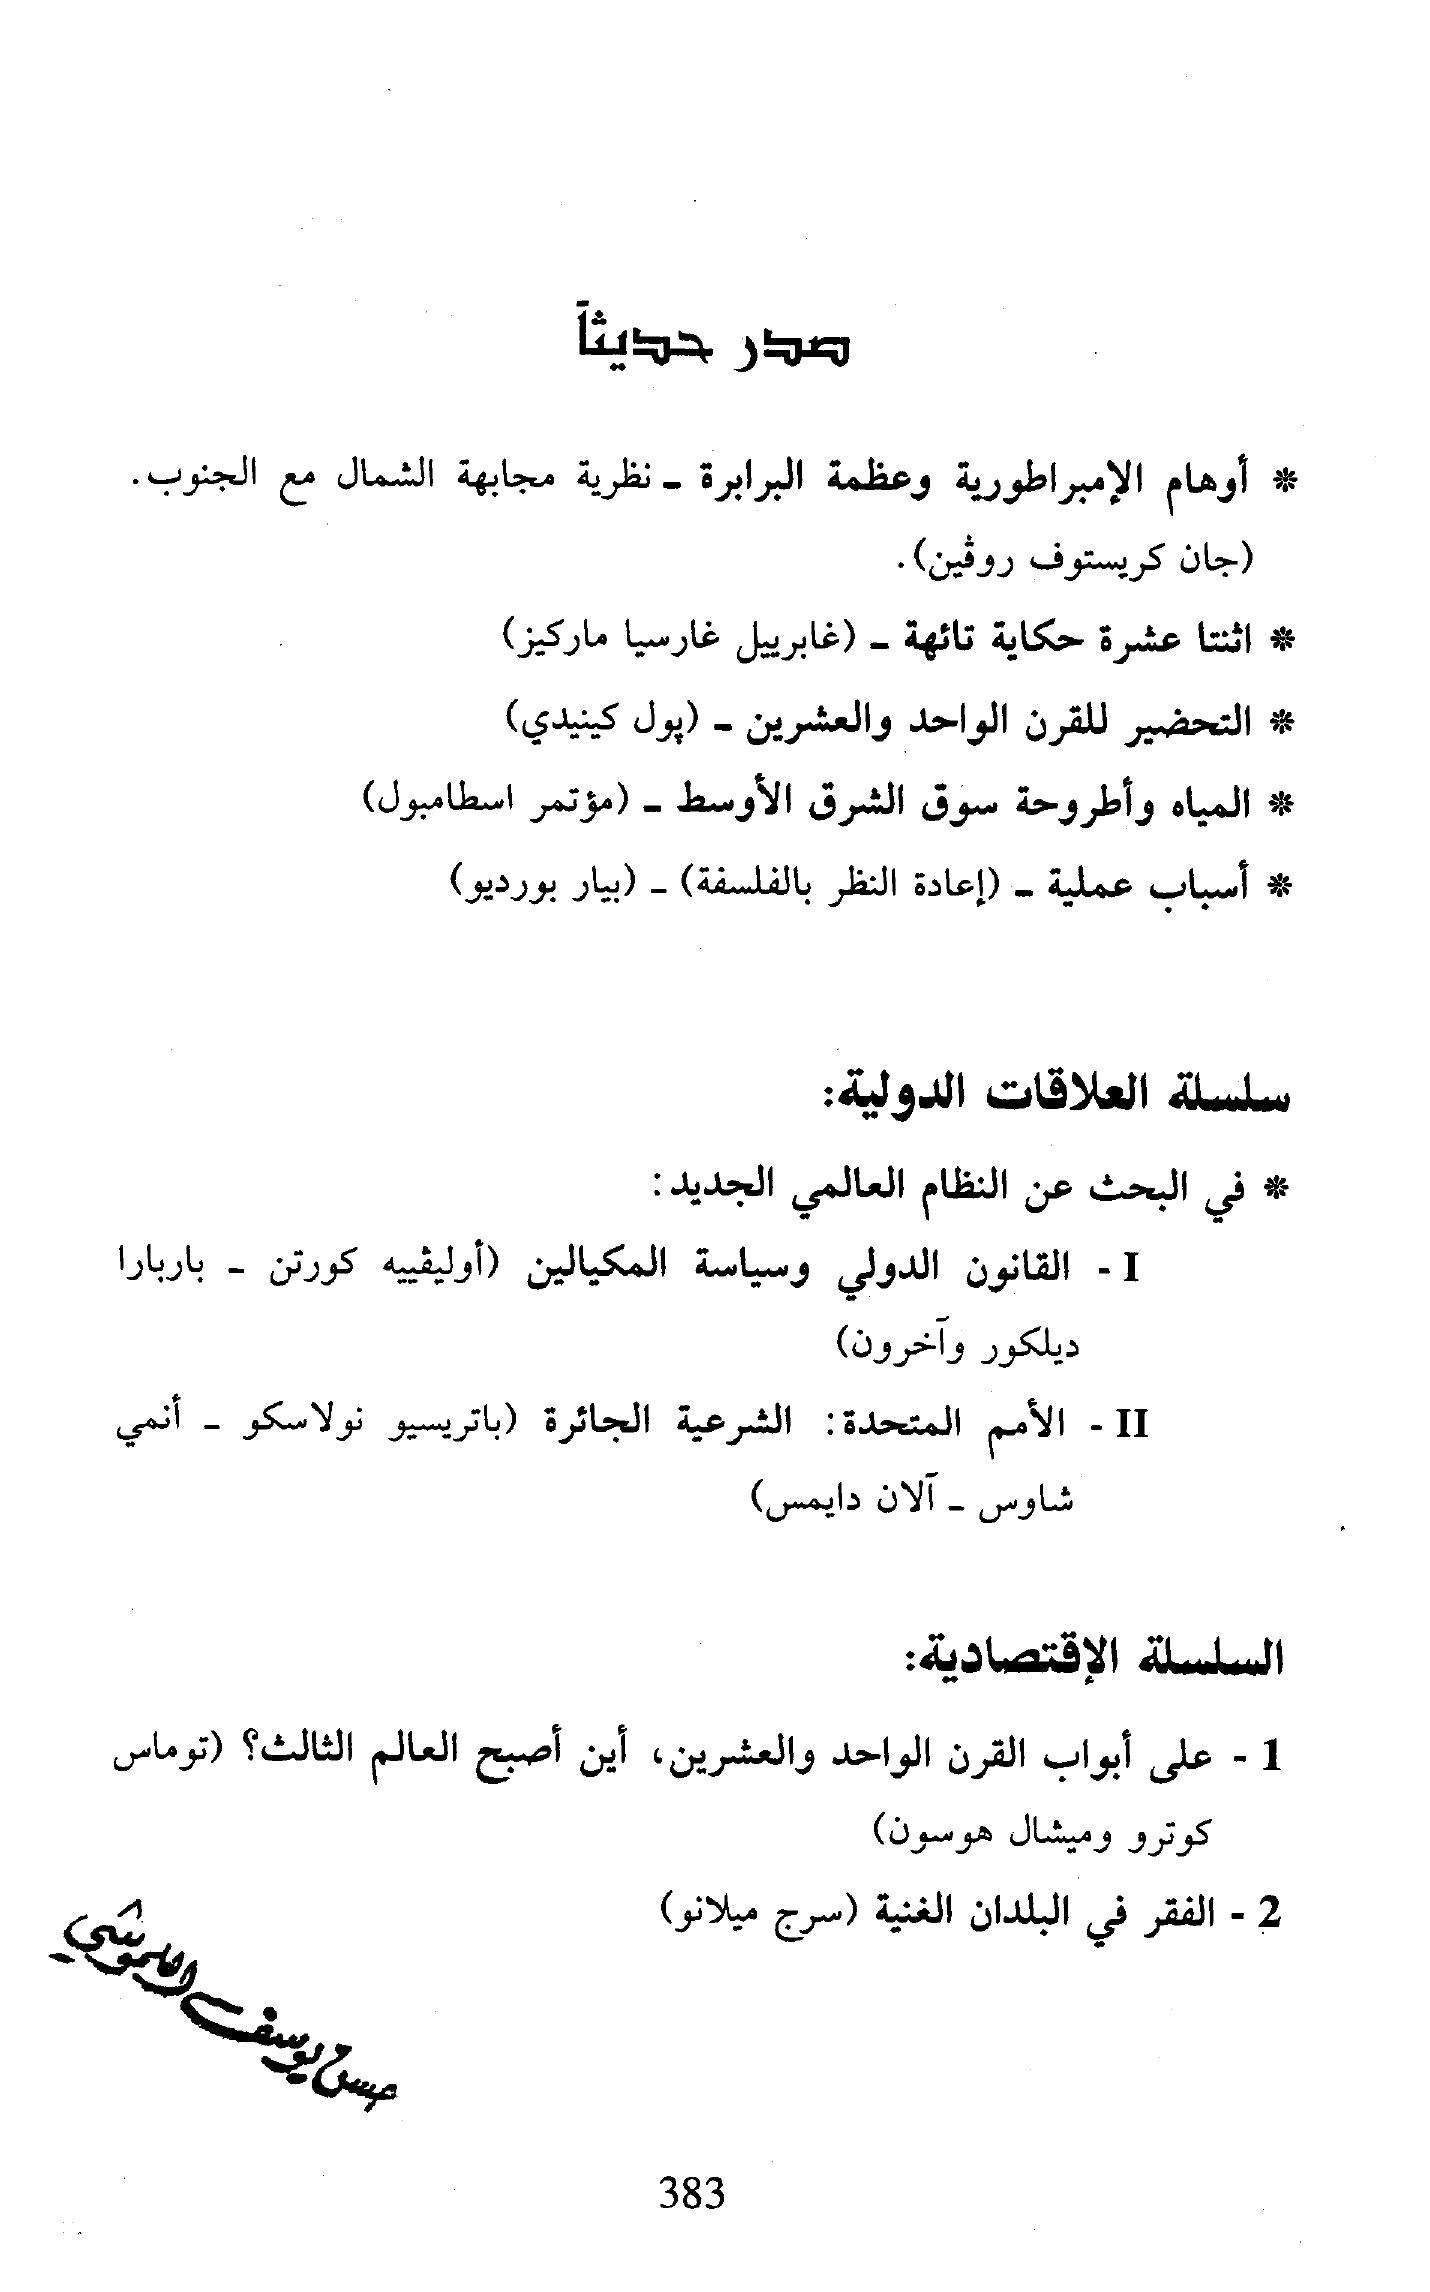 صدر حديثاً
* أوهام الإمبراطورية وعظمة البرابرة ـ نظرية مجابهة الشمال مع الجنوب.
(جان كريستوف روڤين).
* اثنتا عشرة حكاية تائهة ـ (غابرييل غارسيا ماركيز)
* التحضير للقرن الواحد والعشرين ـ (پول كينيدي)
* المياه وأطروحة سوق الشرق الأوسط ـ (مؤتمر اسطامبول)
* أسباب عملية ـ (إعادة النظر بالفلسفة) ـ (بيار بورديو)
سلسلة العلاقات الدولية:
* في البحث عن النظام العالمي الجديد:
I - القانون الدولي وسياسة المكيالين (أوليڤييه كورتن ـ باربارا
ديلكور وآخرون)
II - الأمم المتحدة: الشرعية الجائرة (باتريسيو نولاسكو ـ أنمي
شاوس ـ آلان دايمس)
السلسلة الإقتصادية:
1 - على أبواب القرن الواحد والعشرين، أين أصبح العالم الثالث؟ (توماس
كوترو وميشال هوسون)
2 - الفقر في البلدان الغنية (سرج ميلانو)
حسن يوسف
383